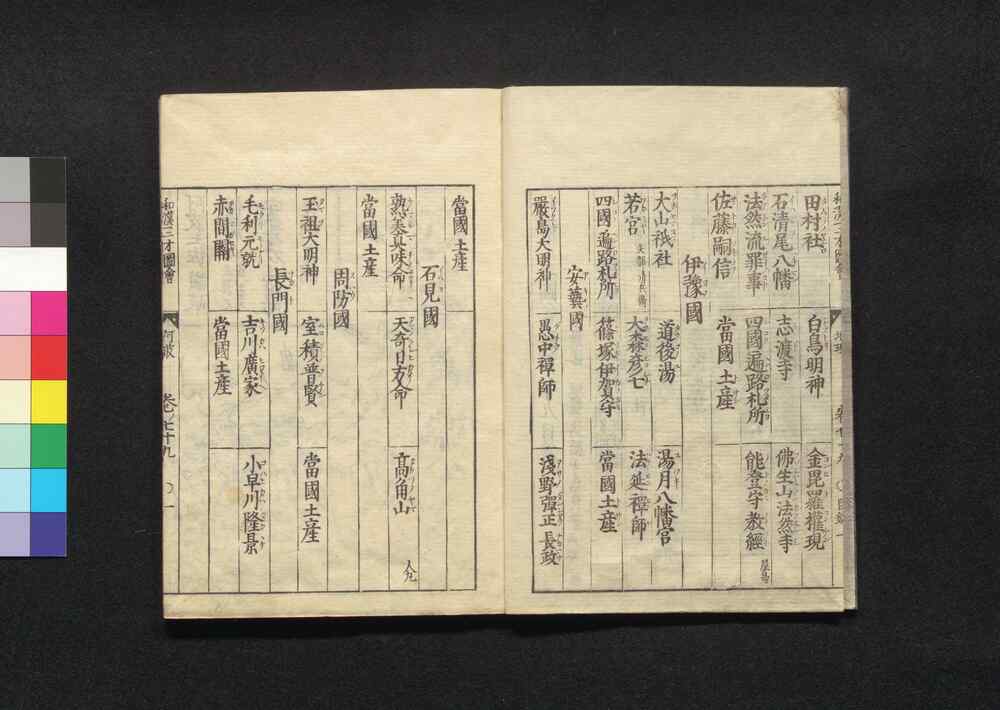 田村社 白鳥明神 金毘羅權現
石清尾八幡 志渡寺 佛生山法然寺
法然流罪事 四國遍路札所 能登守教經 屋島
佐藤嗣信 當國土産
伊豫國
大山祇社 道後湯 湯月八幡宮
若宮 大森彦七 法延禪師
四國遍路札所 篠塚伊賀守 當國土産
安藝國
嚴島大明神 愚中禪師 淺野彈正長政
當國土産
石見國
天奇日方命 高角山 人丸
當國土産
周防國
玉祖大明神 室積普賢 當國土産
長門國
毛利元就 吉川廣家 小早川隆景
赤間關 當國土産
和漢三才圖會 阿波 卷ノ七十九 〇一